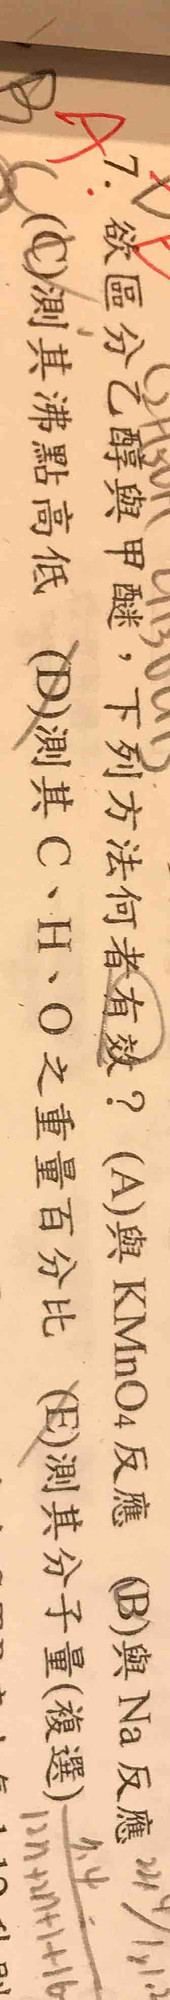 7. 欲區分乙醇與甲醚，下列方法何者有效？ (A)與 KMnO4 反應 (B)與 Na 反應
(C)測其沸點高低 (D)測其 C、H、O 之重量百分比 (E)測其分子量(複選)